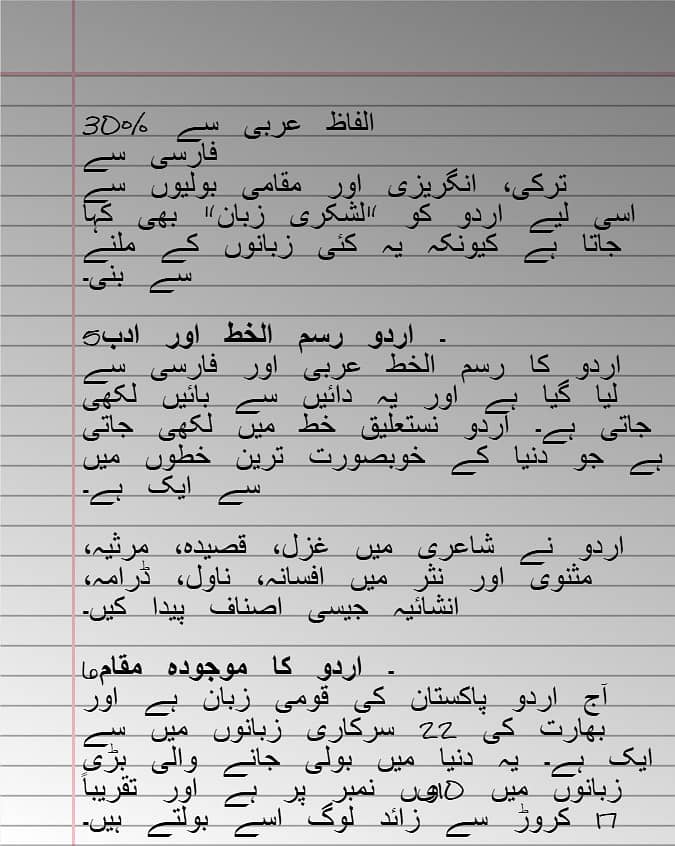 الفاظ عربی سے 30%
فارسی سے
ترکی، انگریزی اور مقامی بولیوں سے
اسی لیے اردو کو "لشکری زبان" بھی کہا
جاتا ہے کیونکہ یہ کئی زبانوں کے ملنے
سے بنی۔
۔ اردو رسم الخط اور ادب5
اردو کا رسم الخط عربی اور فارسی سے
لیا گیا ہے اور یہ دائیں سے بائیں لکھی
جاتی ہے۔ اردو نستعلیق خط میں لکھی جاتی
ہے جو دنیا کے خوبصورت ترین خطوں میں
سے ایک ہے۔
اردو نے شاعری میں غزل، قصیدہ، مرثیہ،
مثنوی اور نثر میں افسانہ، ناول، ڈرامہ،
انشائیہ جیسی اصناف پیدا کیں۔
۔ اردو کا موجودہ مقام6
آج اردو پاکستان کی قومی زبان ہے اور
بھارت کی 22 سرکاری زبانوں میں سے
ایک ہے۔ یہ دنیا میں بولی جانے والی بڑی
زبانوں میں نمبر پر ہے اور تقریباً
17 کروڑ سے زائد لوگ اسے بولتے ہیں۔